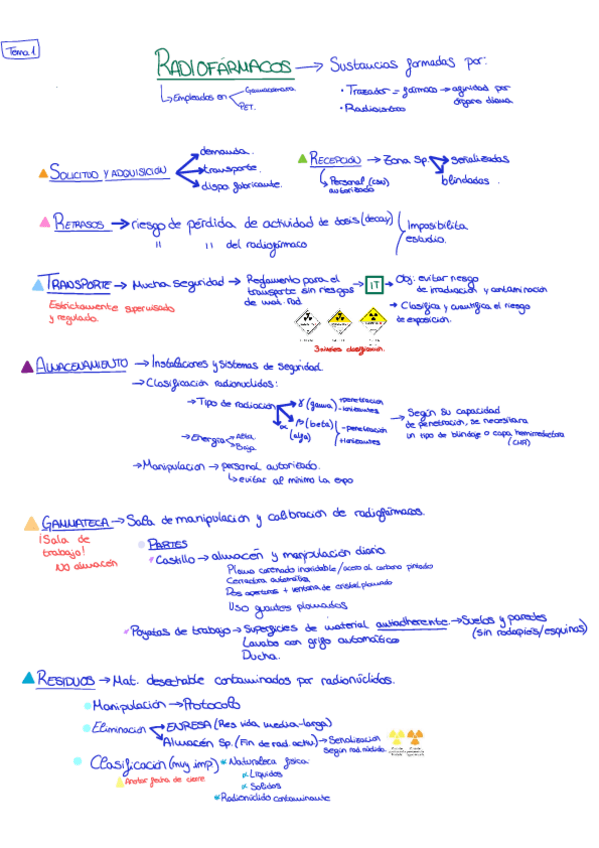 Tema 1
RADIOFÁRMACOS → Sustancias formadas por:
↳ Empleados en
Gammacámara.
PET.
• Trazador = fármaco → afinidad por
órgano diana.
• Radioisótopo
SOLICITUD Y ADQUISICIÓN
demanda.
transporte.
dispo fabricante.
RECEPCIÓN → Zona Sp.
señalizadas
blindadas.
↳ Personal (CSN)
autorizado
RETRASOS → riesgo de pérdida de actividad de dosis (decay)
" " del radiofármaco
Imposibilita
estudio.
TRANSPORTE → Mucha seguridad → Reglamento para el
transporte sin riesgos
de mat. rad.
→ IT → Obj: evitar riesgo
de irradiación y contaminación
→ Clasifica y cuantifica el riesgo
de exposición.
Estrictamente supervisado
y regulado.
ALMACENAMIENTO → Instalaciones y sistemas de seguridad.
→ Clasificación radionúclidos:
→ Tipo de radiación
γ (gamma)
+penetración
-ionizantes
β (beta)
α
(alfa)
-penetración
+ionizantes
→ Según su capacidad
de penetración, se necesitará
un tipo de blindaje o capa hemirreductora
(CHR)
→ Energía
Alta
Baja
→ Manipulación → personal autorizado.
↳ evitar al mínimo la expo
GAMMATECA → Sala de manipulación y calibración de radiofármacos.
¡Sala de
trabajo!
NO almacén
PARTES
Castillo → almacén y manipulación diaria
Plomo
Cerradura automática
Dos aperturas + ventana de cristal plomado
Uso guantes plomados
Poyatas de trabajo → Superficies de material antiadherente. → Suelos y paredes
(sin rodapiés/esquinas)
Lavabo con grifo automático
Ducha.
RESIDUOS → Mat. desechable contaminados por radionúclidos.
Manipulación → Protocolo
Eliminación
ENRESA (Res vida media-larga)
Almacén Sp. (Fin de rad. activ) → Señalización
según rad.
Clasificación (muy imp)
Anotar fecha de cierre
* Naturaleza física:
* Líquidos
* Sólidos
* Radionúclido contaminante